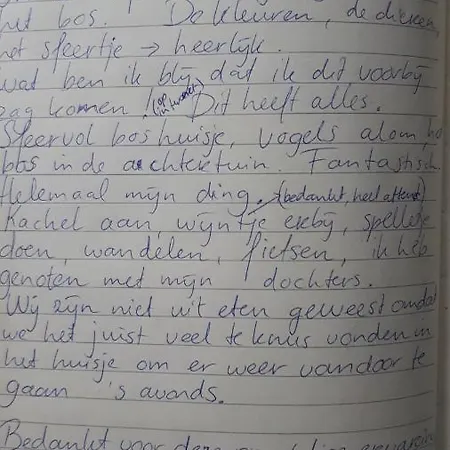 het bos. ! De kleuren, de dieren,
het sfeertje → heerlijk.
wat ben ik blij dat ik dit voorbij
zag komen! (op internet) Dit heeft alles.
Sfeervol boshuisje, vogels alom, het
bos in de achtertuin. Fantastisch.
Helemaal mijn ding. (bedankt, heel attent)
Kachel aan, wijntje erbij, spelletje
doen, wandelen, fietsen, ik heb
genoten met mijn dochters.
Wij zijn niet uit eten geweest omdat
we het juist veel te knus vonden in
het huisje om er weer vandoor te
gaan 's avonds.
Bedankt voor deze